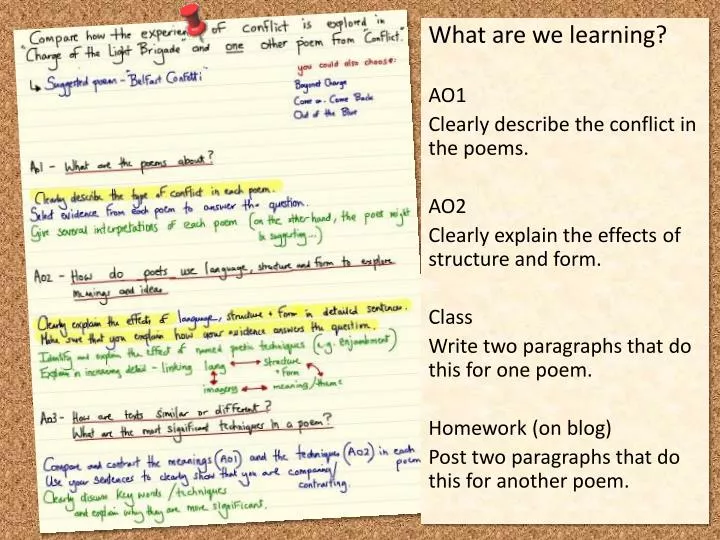 "Compare how the experience of conflict is explored in
"Charge of the Light Brigade" and one other poem from "Conflict."
↳ Suggested poem - "Belfast Confetti"
you could also choose:
Bayonet Charge
Come on. Come Back
Out of the Blue
Ao1 - What are the poems about?
Clearly describe the type of conflict in each poem.
Select evidence from each poem to answer the question.
Give several interpretations of each poem (on the other hand, the poet might
be suggesting...)
Ao2 - How do poets use language, structure and form to explore
meanings and ideas
Clearly explain the effects of language, structure + form in detailed sentences.
Make sure that you explain how your evidence answers the question.
Identify and explain the effect of named poetic techniques (e.g. enjambment)
Explain in increasing detail - linking lang ↔ structure
+ form
imagery ↔ meaning/theme
Ao3 - How are texts similar or different?
What are the most significant techniques in a poem?
Compare and contrast the meanings (Ao1) and the techniques (AO2) in each
poem
Use your sentences to clearly show that you are comparing/
contrasting.
Clearly discuss key words / techniques
and explain why they are more significant.
What are we learning?
AO1
Clearly describe the conflict in
the poems.
AO2
Clearly explain the effects of
structure and form.
Class
Write two paragraphs that do
this for one poem.
Homework (on blog)
Post two paragraphs that do
this for another poem.